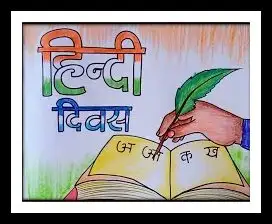 हिन्दी
दिवस
अ आ क ख